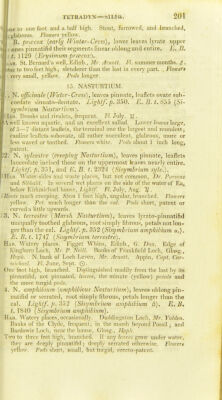 TETRADYN—SILIQ. 201
one to one foot and a half. Stout, furrowed, and branched,
glabrous. Flowers yellow.
B. præcox (early Winter-Cress), lower leaves lyrate upper
ones pinnatifid their segments linear oblong and entire. E. B.
t. 1129 (Erysimum præcox).
St. Bernard's well, Edinb., Mr Arnott. Fl. summer months.
to two feet high, slenderer than the last in every part. Flowers
very small, yellow. Pods longer.
13. NASTURTIUM.
N. officinale (Water-Cress), leaves pinnate, leaflets ovate sub-
cordate sinuato-dentate. Lightf. p. 350. E. B. t. 855 (Si-
symbrium Nasturtium).
Hab. Brooks and rivulets, frequent. Fl. July.
A well known aquatic, and an excellent sallad. Lower leaves large,
of 5—7 distant leaflets, the terminal one the largest and roundest,
cauline leaflets subovate, all rather succulent, glabrous, more or
less waved or toothed. Flowers white. Pods about 1 inch long,
patent.
2. N. sylvestre (creeping Nasturtium), leaves pinnate, leaflets
lanceolate incised those on the uppermost leaves nearly entire.
Lightf. p. 351, and E. B. t. 2324 (Sisymbrium sylv.).
Hab. Water sides and waste places, but not common, Dr. Parsons
and Sibbald. In several wet places on the side of the water of Ea,
below Kirkmichael house, Lightf. Fl. July, Aug.
Root much creeping. Stem 1 foot high, angular, branched. Flowers
yellow. Pet. much longer than the cal. Pods short, patent or
curved a little upwards.
3. N. terrestre (Marsh Nasturtium), leaves lyrato-pinnatifid
unequally toothed glabrous, root simply fibrous, petals not lon-
ger than the cal. Lightf. p. 352 (Sisymbrium amphibium α.).
E. B. t. 1747 (Sisymbrium terrestre).
Hab. Watery places. Figget Whins, Edinb., G. Don. Edge of
Kinghorn Loch, Mr P. Neill. Banks of Frankfield Loch, Glasg.,
Hopk. N. bank of Loch Leven, Mr Arnott. Appin, Capt. Car-
michael. Fl. June, Sept.
One foot high, branched. Distinguished readily from the last by its
pinnatifid, not pinnated, leaves, the minute (yellow) petals and
the more turgid pods.
4. N. amphibium (amphibious Nasturtium), leaves oblong pin-
natifid or serrated, root simply fibrous, petals longer than the
cal. Lightf. p. 352 (Sisymbrium amphibium β). E. B.
t. 1840 (Sisymbrium amphibium).
Hab. Watery places, occasionally. Duddingston Loch, Mr Yalden.
Banks of the Clyde, frequent, in the marsh beyond Possil, and
Bardowie Loch, near the house, Glasg., Hopk.
Two to three feet high, branched. If any leaves grow under water,
they are deeply pinnatifid; deeply serrated otherwise. Flowers
yellow. Pods short, small, but turgid, cerreto-patent.